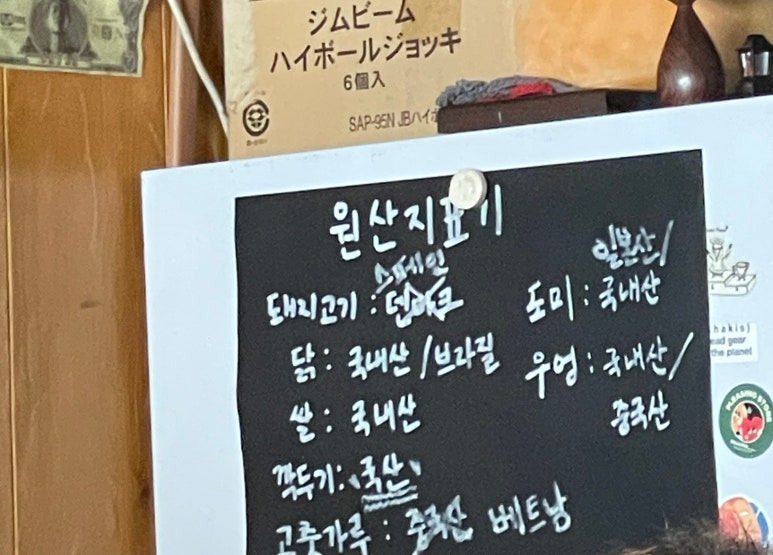 ジムビーム
ハイボールジョッキ
6個入
SAP-95N JBハイボ
원산지표기
스페인
돼지고기 : 덴마크
닭 : 국내산 / 브라질
쌀 : 국내산
깍두기 : "국산"
고춧가루 : 중국산 베트남
일본산/
도미 : 국내산
우엉 : 국내산 /
중국산
hakis)
ead gear
the planet
PLEASING STORE